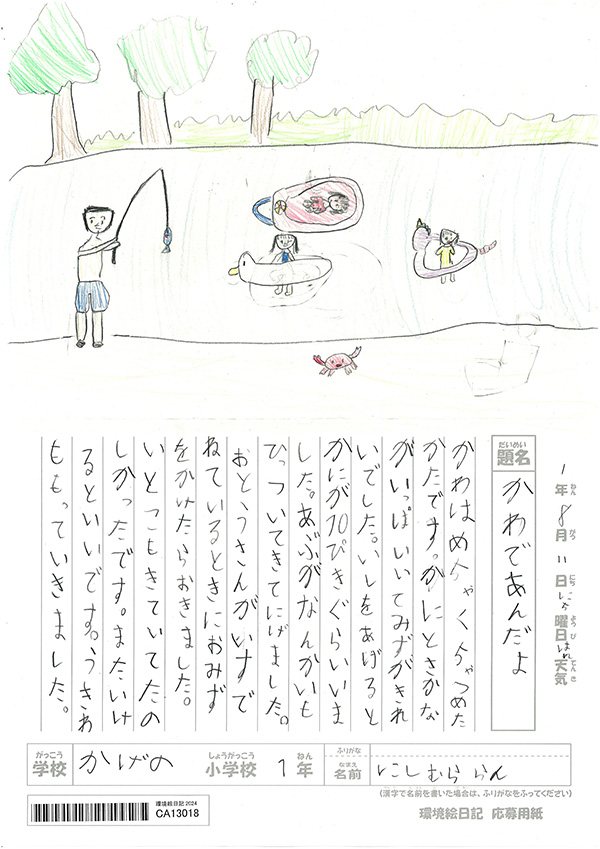 1年8月11日にち曜日はれ天気
ねん がつ にち ようび てんき
だいめい
題名
かわであんだよ
かわはめちゃくちゃつめた
かたです。かにとさかな
がいっぱいいてみずがきれ
いでした。いしをあげると
かにが10ぴきぐらいいま
した。あぶがなんかいも
ひっついてきてにげました。
おとうさんがいすで
ねているときにおみず
をかけたらおきました。
いとこもきていてたの
しかったです。またいけ
るといいです。うきわ
ももっていきました。
がっこう しょうがっこう ねん ふりがな
学校 かげの 小学校 1年
なまえ
名前 にしむららん
(漢字で名前を書いた場合は、ふりがなをふってください)
環境絵日記2024
CA13018
環境絵日記 応募用紙